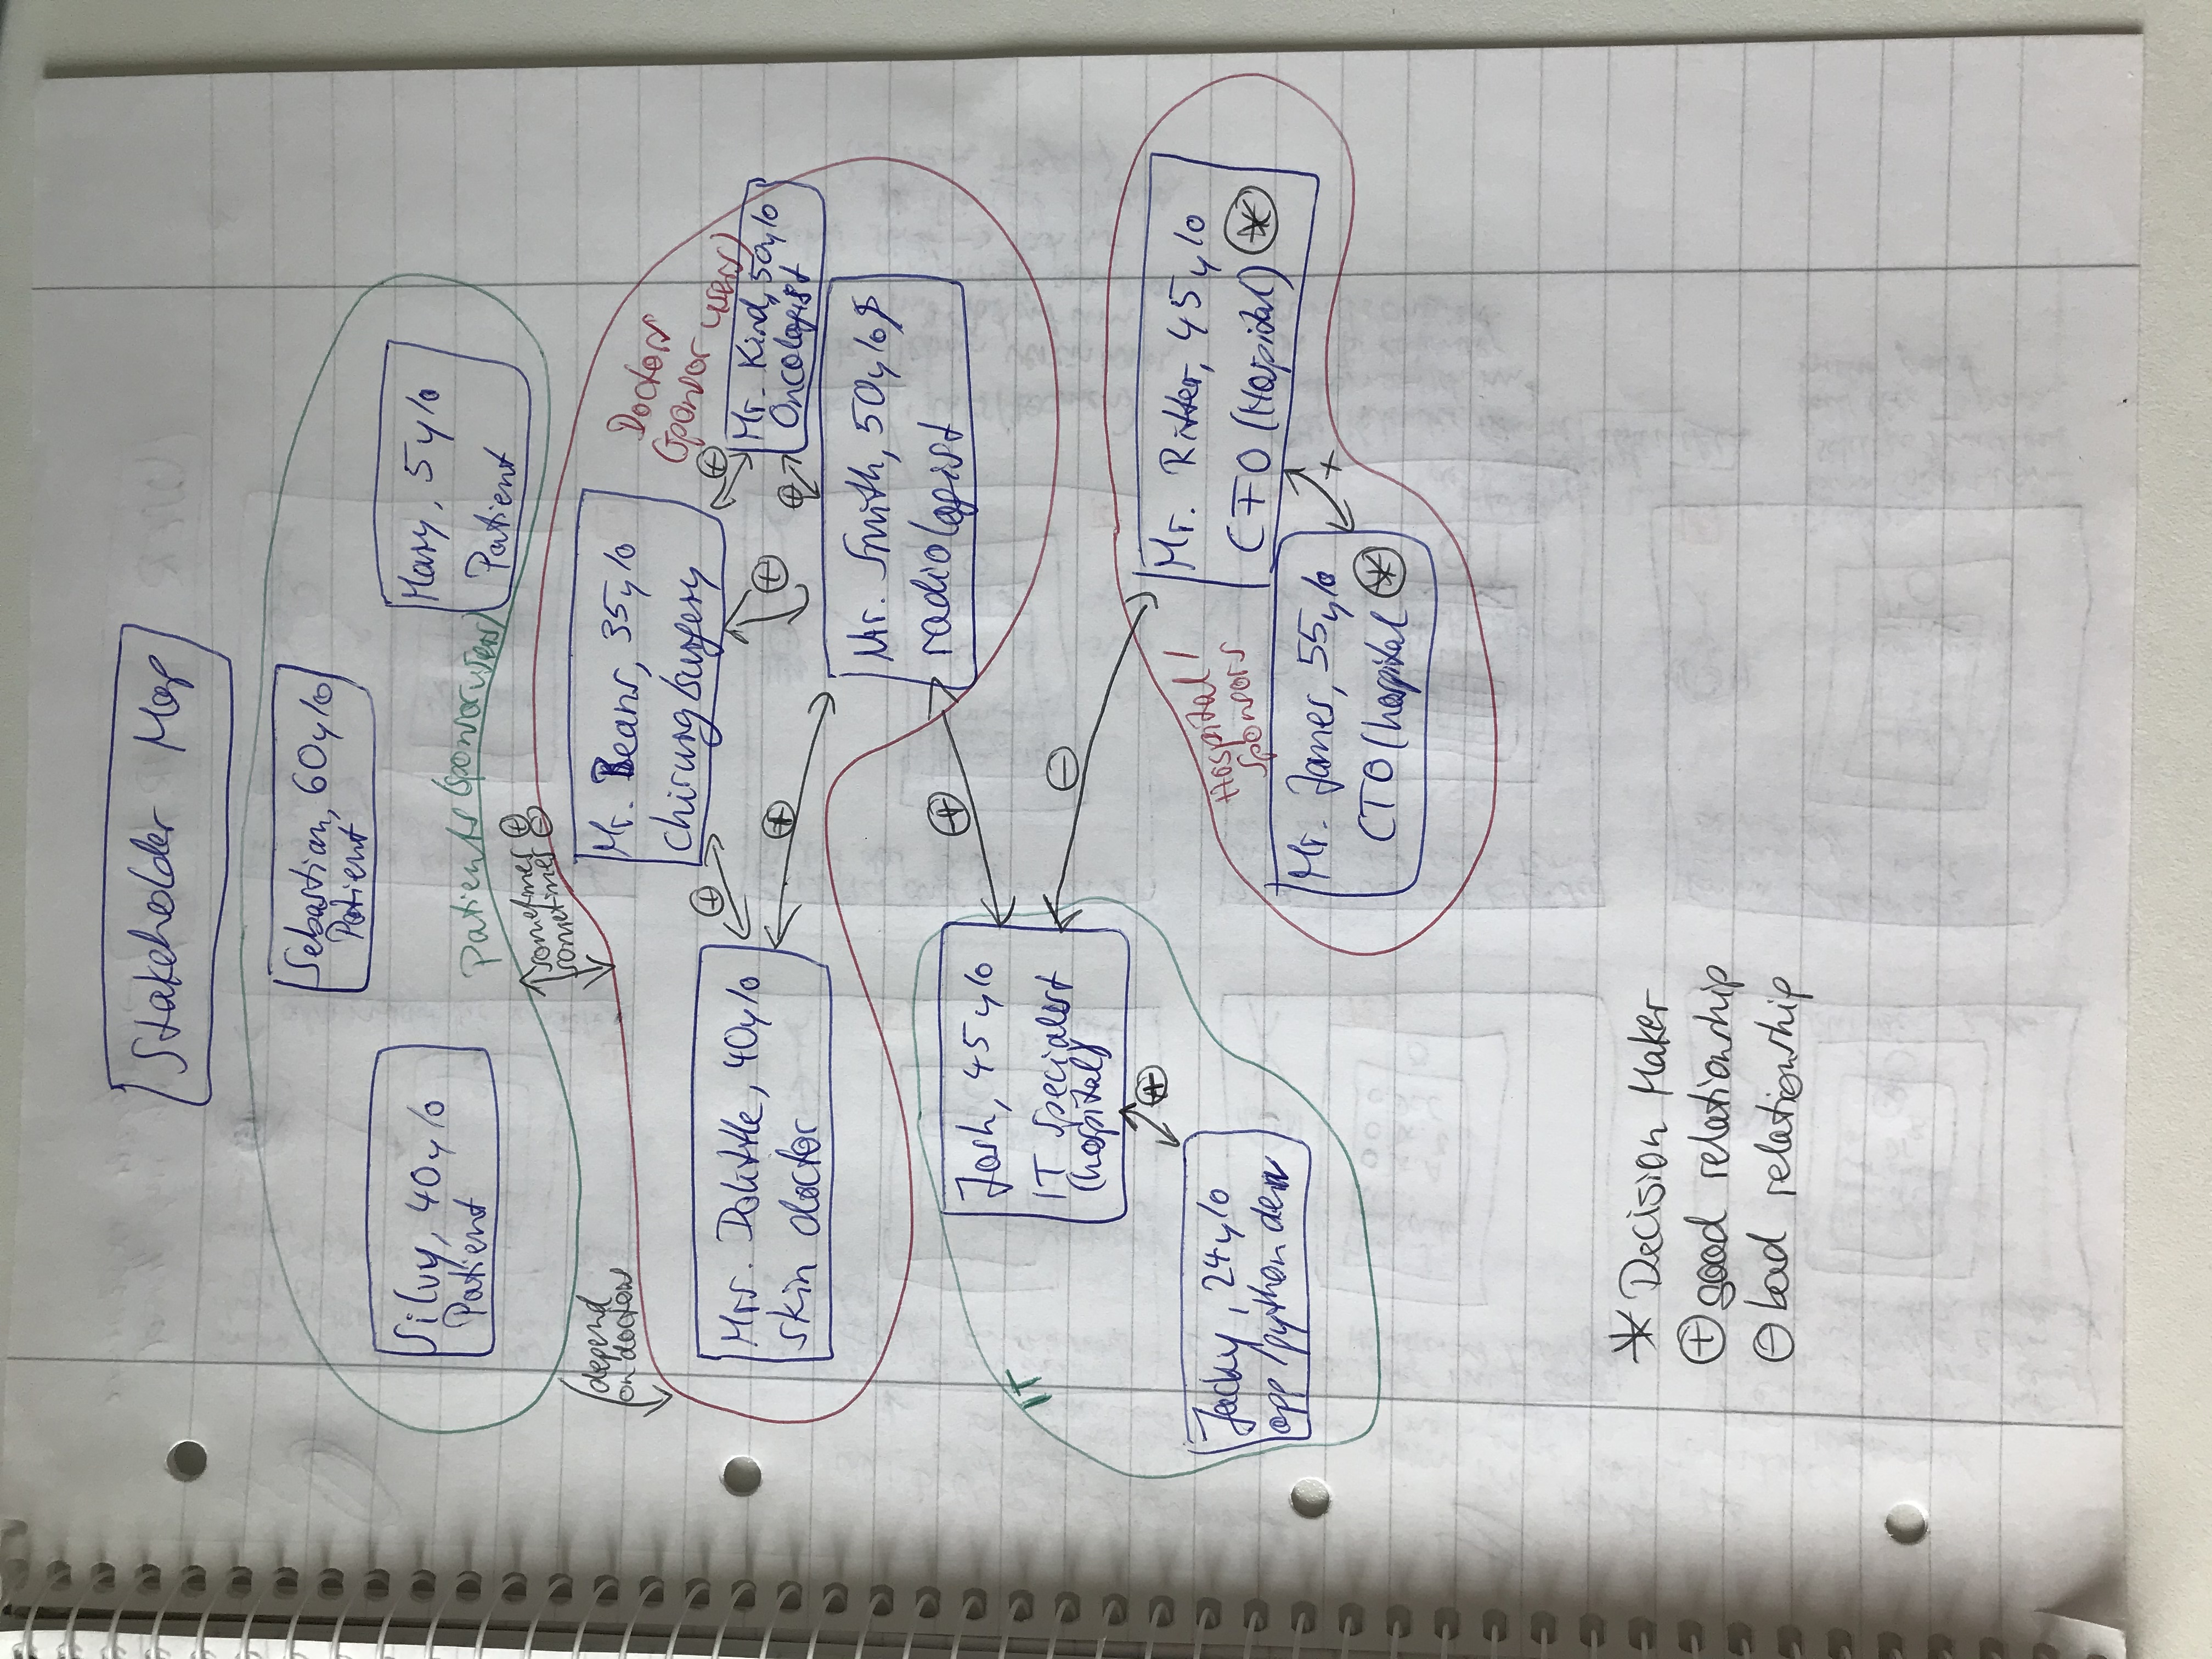 Stakeholder Map
Sebastian, 60y/o
Patient
Silvy, 40y/o
Patient
Mary, 5y/o
Patient
Patients (sponsor users)
sometimes ⊕
sometimes ⊖
depend
on doctors
Mr. Beans, 35y/o
Chirurg/surgery
Doctors
(sponsor users)
Mrs. Dolittle, 40y/o
skin doctor
⊕
⊕
⊕
⊕
⊕
Mr. Kind, 50y/o
Oncologist
Mr. Smith, 50y/o
radiologist
⊕
IT
Josh, 45y/o
IT specialist
(hospital)
⊖
⊕
Jacky, 24y/o
app/python dev
Hospital/
sponsors
Mr. Ritter, 45y/o
CFO (Hospital) *
Mr. James, 55y/o
CTO (hospital *
+
* Decision Maker
⊕ good relationship
⊖ bad relationship